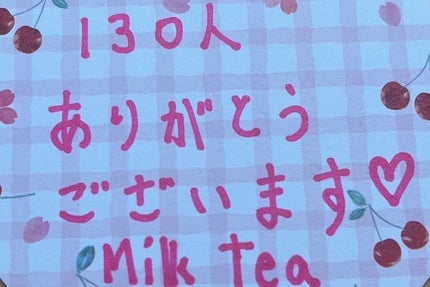 130人
ありがとう
ございます♡
Milk Tea